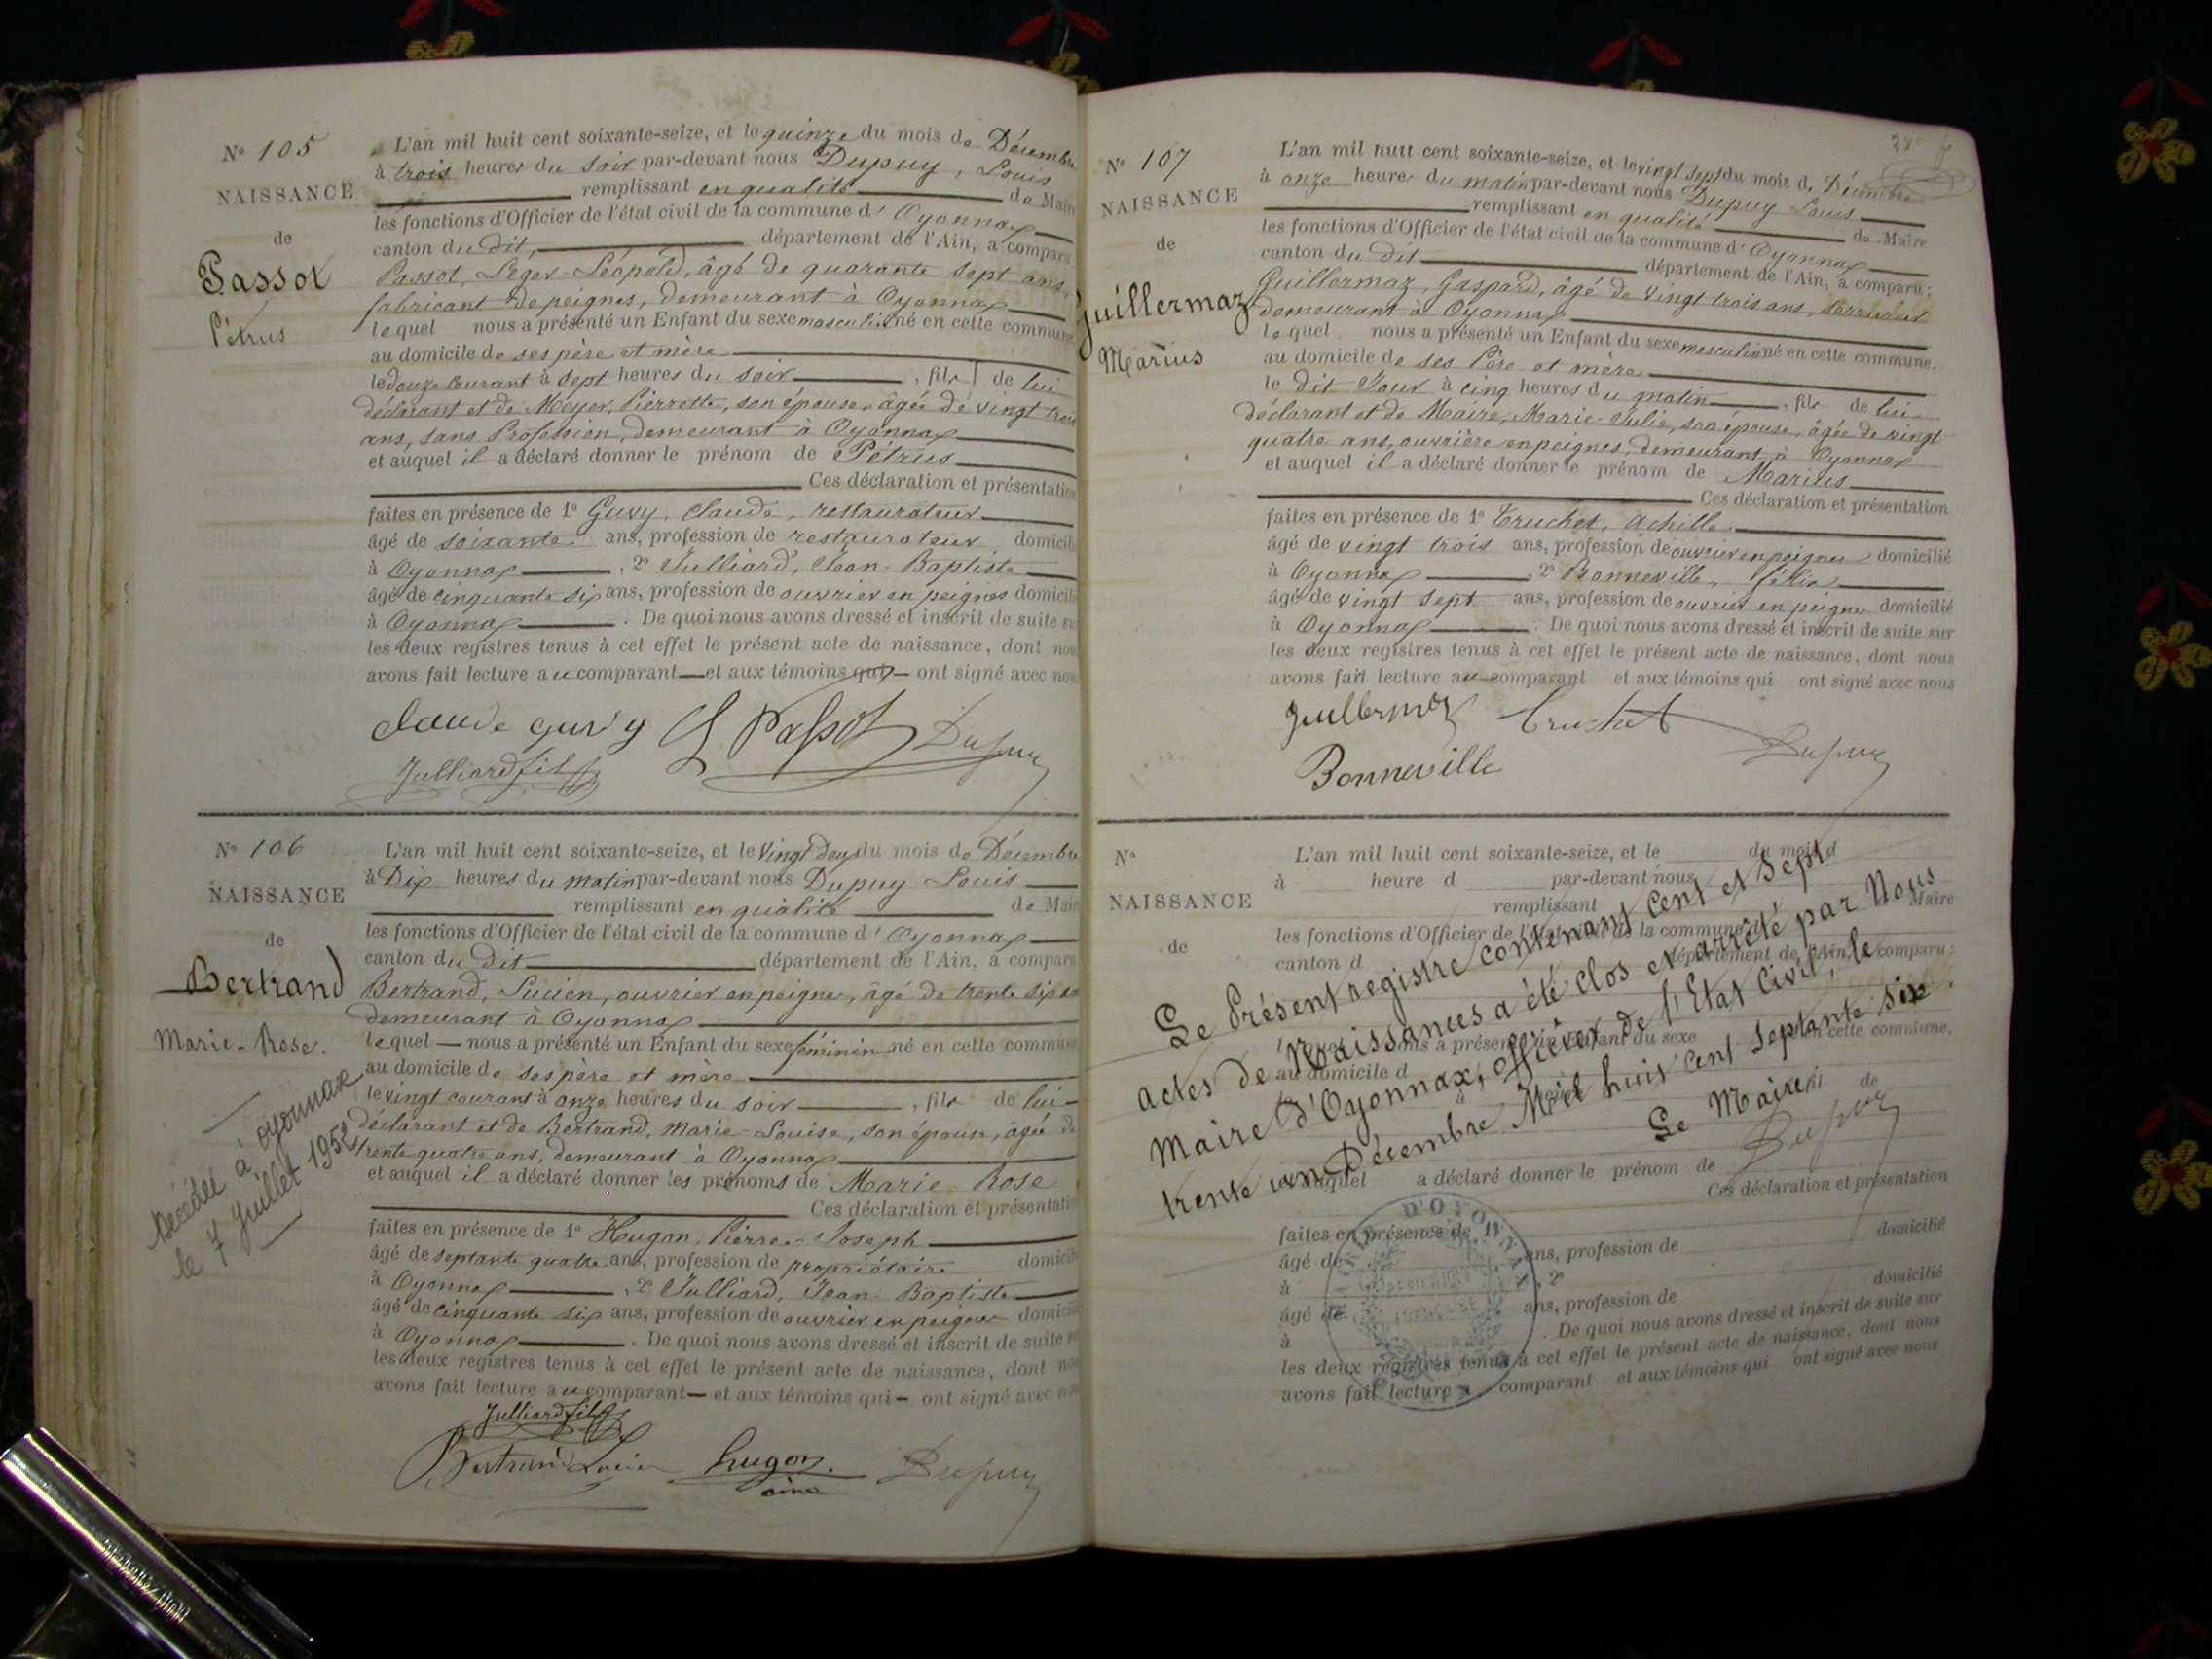 N° 105
NAISSANCE
de
Passot
Pétrus
L'an mil huit cent soixante-seize, et le quinze du mois de Décembre
à trois heures du soir par-devant nous Dupuy, Louis
remplissant en qualité de Maire
les fonctions d'Officier de l'état civil de la commune d'Oyonnax
canton du dit, département de l'Ain, a comparu
Passot, Léger-Léopold, âgé de quarante sept ans,
fabricant de peignes, demeurant à Oyonnax
lequel nous a présenté un Enfant du sexe masculin né en cette commune
au domicile de ses père et mère
le douze courant à sept heures du soir, fils de lui
déclarant et de Meyer, Pierrette, son épouse, âgée de vingt trois
ans, sans Profession, demeurant à Oyonnax
et auquel il a déclaré donner le prénom de Pétrus
Ces déclaration et présentation
faites en présence de 1° Guvy, Claude, restaurateur
âgé de soixante ans, profession de restaurateur domicilié
à Oyonnax, 2° Julliard, Jean-Baptiste
âgé de cinquante six ans, profession de ouvrier en peignes domicilié
à Oyonnax. De quoi nous avons dressé et inscrit de suite sur
les deux registres tenus à cet effet le présent acte de naissance, dont nous
avons fait lecture au comparant et aux témoins qui ont signé avec nous
Claude guvy L Passot Dupuy
Julliard fils
N° 106
NAISSANCE
de
Bertrand
Marie-Rose.
Décédée à Oyonnax
le 7 Juillet 1952
L'an mil huit cent soixante-seize, et le vingt deux du mois de Décembre
à Dix heures du matin par-devant nous Dupuy Louis
remplissant en qualité de Maire
les fonctions d'Officier de l'état civil de la commune d'Oyonnax
canton du dit département de l'Ain, a comparu
Bertrand, Lucien, ouvrier en peignes, âgé de trente six ans
demeurant à Oyonnax
lequel nous a présenté un Enfant du sexe féminin né en cette commune
au domicile de ses père et mère
le vingt courant à onze heures du soir, fille de lui
déclarant et de Bertrand, Marie-Louise, son épouse, âgée de
trente quatre ans, demeurant à Oyonnax
et auquel il a déclaré donner les prénoms de Marie-Rose
Ces déclaration et présentation
faites en présence de 1° Hugon, Pierre-Joseph
âgé de septante quatre ans, profession de propriétaire domicilié
à Oyonnax, 2° Julliard, Jean-Baptiste
âgé de cinquante six ans, profession de ouvrier en peignes domicilié
à Oyonnax. De quoi nous avons dressé et inscrit de suite sur
les deux registres tenus à cet effet le présent acte de naissance, dont nous
avons fait lecture au comparant et aux témoins qui ont signé avec nous
Julliard fils
Bertrand Lucien hugon Dupuy
ainé
N° 107
NAISSANCE
de
Guillermaz
Marius
L'an mil huit cent soixante-seize, et le vingt sept du mois de Décembre
à onze heures du matin par-devant nous Dupuy Louis
remplissant en qualité de Maire
les fonctions d'Officier de l'état civil de la commune d'Oyonnax
canton du dit département de l'Ain, a comparu :
Guillermaz, Gaspard, âgé de vingt trois ans, serrurier
demeurant à Oyonnax
lequel nous a présenté un Enfant du sexe masculin né en cette commune,
au domicile de ses Père et mère
le dit Jour à cinq heures du matin, fils de lui
déclarant et de Maire, Marie-Julie, son épouse, âgée de vingt
quatre ans, ouvrière en peignes, demeurant à Oyonnax
et auquel il a déclaré donner le prénom de Marius
Ces déclaration et présentation
faites en présence de 1° Truchet, Achille.
âgé de vingt trois ans, profession de ouvrier en peignes domicilié
à Oyonnax, 2° Bonneville, Félix
âgé de vingt sept ans, profession de ouvrier en peignes domicilié
à Oyonnax. De quoi nous avons dressé et inscrit de suite sur
les deux registres tenus à cet effet le présent acte de naissance, dont nous
avons fait lecture au comparant et aux témoins qui ont signé avec nous
Guillermoz Truchet
Bonneville Dupuy
N°
NAISSANCE
de
L'an mil huit cent soixante-seize, et le du mois d
à heure d par-devant nous
remplissant Maire
les fonctions d'Officier de l'état civil de la commune d
canton d département de l'Ain, a comparu :
Le Présent registre contenant Cent et Sept
actes de Naissances a été clos et arrêté par Nous
Maire d'Oyonnax, officier de l'Etat Civil, le
trente un Décembre Mil huit Cent Septante Six.
Le Maire
Dupuy
lequel nous a présenté un Enfant du sexe né en cette commune,
au domicile d
à fil de
et auquel a déclaré donner le prénom de
Ces déclaration et présentation
faites en présence de 1°
âgé de ans, profession de domicilié
à , 2°
âgé de ans, profession de domicilié
à . De quoi nous avons dressé et inscrit de suite sur
les deux registres tenus à cet effet le présent acte de naissance, dont nous
avons fait lecture a comparant et aux témoins qui ont signé avec nous